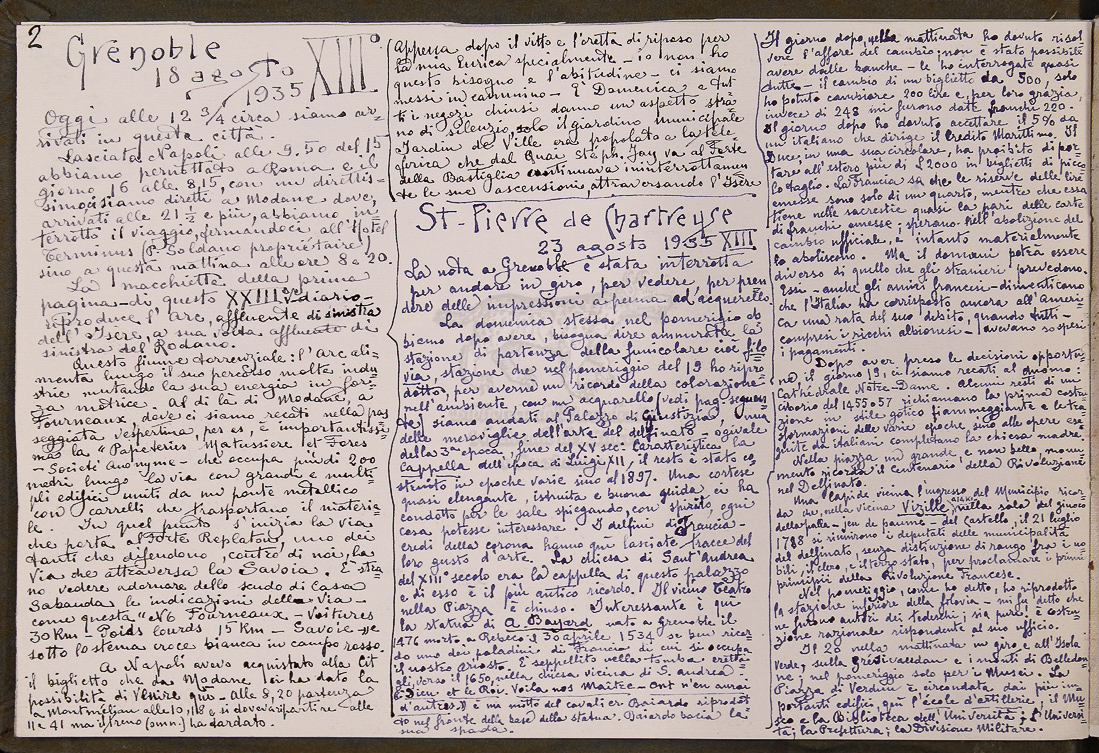 2
Grenoble
18 agosto
1935 XIII°
Oggi alle 12 3/4 circa siamo ar=
rivati in questa città.
Lasciata Napoli alle 9.50 del 15
abbiamo pernottato a Roma e il
giorno 16 alle 8,15, con un direttis=
simo, siamo diretti a Modane dove,
arrivati alle 21 1/2 e più, abbiamo in=
terrotto il viaggio, fermandoci all'Hotel
Terminus (P. Soldano propriétaire)
sino a questa mattina alle ore 8 e 20.
La macchietta della prima
pagina di questo XXIII° diario
riproduce l'arc, affluente di sinistra
dell'Isère, a sua volta affluente di
sinistra del Rodano.
Questo fiume torrenziale: l'arc ali=
menta lungo il suo percorso molte indu
strie mutando la sua energia in for=
za motrice. Al di là di Modane, a
Fourneaux, dove ci siamo recati nella pas
seggiata vespertina, per es, è importantissi
ma la "Papeteries Matussiere et Fores
- Societé Anonyme - che occupa più di 200
metri lungo la via con grandi e multi=
pli edifici uniti da un ponte metallico
con carrelli che trasportano il materia=
le. In quel punto s'inizia la via
che porta al Forte Replaton, uno dei
tanti che difendono, contro di noi, la
via che attraversa la Savoia. È stra=
no vedere adornare dello scudo di Casa
Sabauda le indicazioni della via
come questa "N6 Fourneaux - Voitures
30 Km - Poids lourds, 15 Km - Savoie
sotto lo stema croce bianca in campo rosso.
A Napoli avevo acquistato alla Cit
il biglietto che da Modane ci ha dato la
possibilità di venire qui - alle 8,20 partenza
a Montmelian alle 10,18 e si doveva ripartire alle
11 e 41 ma il treno (omn.) ha dardato.
Appena dopo il vitto e l'oretta di riposo per
la mia Eurica specialmente - io non ho
questo bisogno e l'abitudine - ci siamo
messi in cammino - È Domenica e tut
ti i negozi chiusi danno un aspetto stra=
no di silenzio, solo il giardino municipale
Jardin de Ville era popolato a la tele
ferica che dal Quai Stéph. Jay va al Forte
della Bastiglia continuava ininterrottamen
te le sue ascensioni attraversando l'Isère
St-Pierre de Chartreuse
23 agosto 1935 XIII
La nota a Grenoble è stata interrotta
per andare in giro, per vedere, per pren
dere delle impressioni a penna ad acquerello.
La domenica stessa nel pomeriggio ab
biamo dopo avere, bisogna dire ammirata la
stazione di partenza della funicolare cioè filo
via, stazione che nel pomeriggio del 19 ho ripro
dotto, per averne un ricordo della colorazione
nell'ambiente con un acquarello (vedi pag seguen
te) siamo andati al Palazzo di Giustizia, una
delle meraviglie dell'arte del delfinato, ogivale
della 3ª epoca, fine del XV sec: caratteristica la
Cappella dell'epoca di Luigi XII, il resto è stato co
struito in epoche varie sino al 1897. Una cortese
quasi elegante, istruita e buona guida ci ha
condotto per le sale spiegando, con spirito ogni
cosa potesse interessare. I delfini di Francia -
eredi della corona hanno qui lasciate tracce del
loro gusto d'arte. La chiesa di Sant'Andrea
del XIII secolo era la cappella di questo palazzo
e di esso è il più antico ricordo. Il vicino teatro
nella Piazza è chiuso. Interessante è qui
la statua di a Bayard nato a Grenoble il
1476 morto a Rebecq il 30 aprile 1534 se ben ricor
do uno dei paladini di Francia di cui si occupa
il nostro Ariosto. È seppellito nella tomba eretta=
gli, verso il 1650, nella chiesa vicina di S. Andrea.
Dieu et le Roi. Voila nos Maitre - Ont n'en aurai
d'autres.) è un mitto del cavalier Baiardo riprodot
to nel fronte della base della statua. Baiardo bacia la
sua spada.
Il giorno dopo, nella mattinata ho dovuto risol
vere l'affare del cambio; non è stato possibile
avere dalle banche - le ho interrogate quasi
tutte - il cambio di un biglietto da 500, solo
ho potuto cambiare 200 lire e, per loro grazia,
invece di 248 mi furono date franchi 220.
Il giorno dopo ho dovuto accettare il 5% da
un italiano che dirige il Credito Marittimo. Il
Duce, in una sua circolare, ha proibito di por=
tare all'estero più di £ 2000 in biglietti di picco
lo taglio. La Francia sa che le riserve delle lire
emesse sono solo di un quarto, mentre che essa
tiene nelle sacrestie quasi la pari delle carte
di franchi emesse; sperano nell'abolizione del
cambio ufficiale, e intanto materialmente
lo aboliscono. Ma il domani potrà essere
diverso di quello che gli stranieri prevedono.
Essi - anche gli amici francesi - dimenticano
che l'Italia ha corrisposto ancora all'Ameri
ca una rata del suo debito, quando tutti -
compresi i ricchi albionesi - avevano sospesi
i pagamenti.
Dopo aver preso le decisioni opportu
ne, il giorno 19, ci siamo recati al duomo:
Cathédrale Nôtre-Dame. Alcuni resti di un
ciborio del 1455 o 57 richiamano la prima costru
zione in stile gotico fiammeggiante e le tra
sformazioni delle varie epoche, sino alle opere ese
guite da italiani completano la chiesa madre.
Nella piazza un grande, e non bello, monu
mento ricorda il centenario della Rivoluzione
nel Delfinato.
Una lapide vicina l'ingresso del Municipio ricor=
da che, nella vicina Vizille, nella sala del giuoco
della palla - jeu de paume - del Castello, il 21 luglio
1788 si riunirono i deputati delle municipalità
del delfinato, senza distinzione di rango fra i no
bili, il clero, e il terzo stato, per proclamare i primi
principii della Rivoluzione Francese.
Nel pomeriggio, come ho detto, ho riprodotto
la stazione inferiore della filovia - mi fu detto che
ne furono autori dei tedeschi; sia pure, è costru=
zione razionale rispondente al suo ufficio.
Il 20 nella mattinata in giro e all'Isola
Verde, sulla Gresivaudan e i monti di Belledon
ne; nel pomeriggio solo per i Musei. La
Piazza di Verdun è circondata dai più im=
portanti edifici, qui l'école d'artillerie, il Mu=
seo e la Biblioteca dell'Università; l'Universi=
tà; la Prefettura; la Divisione Militare.